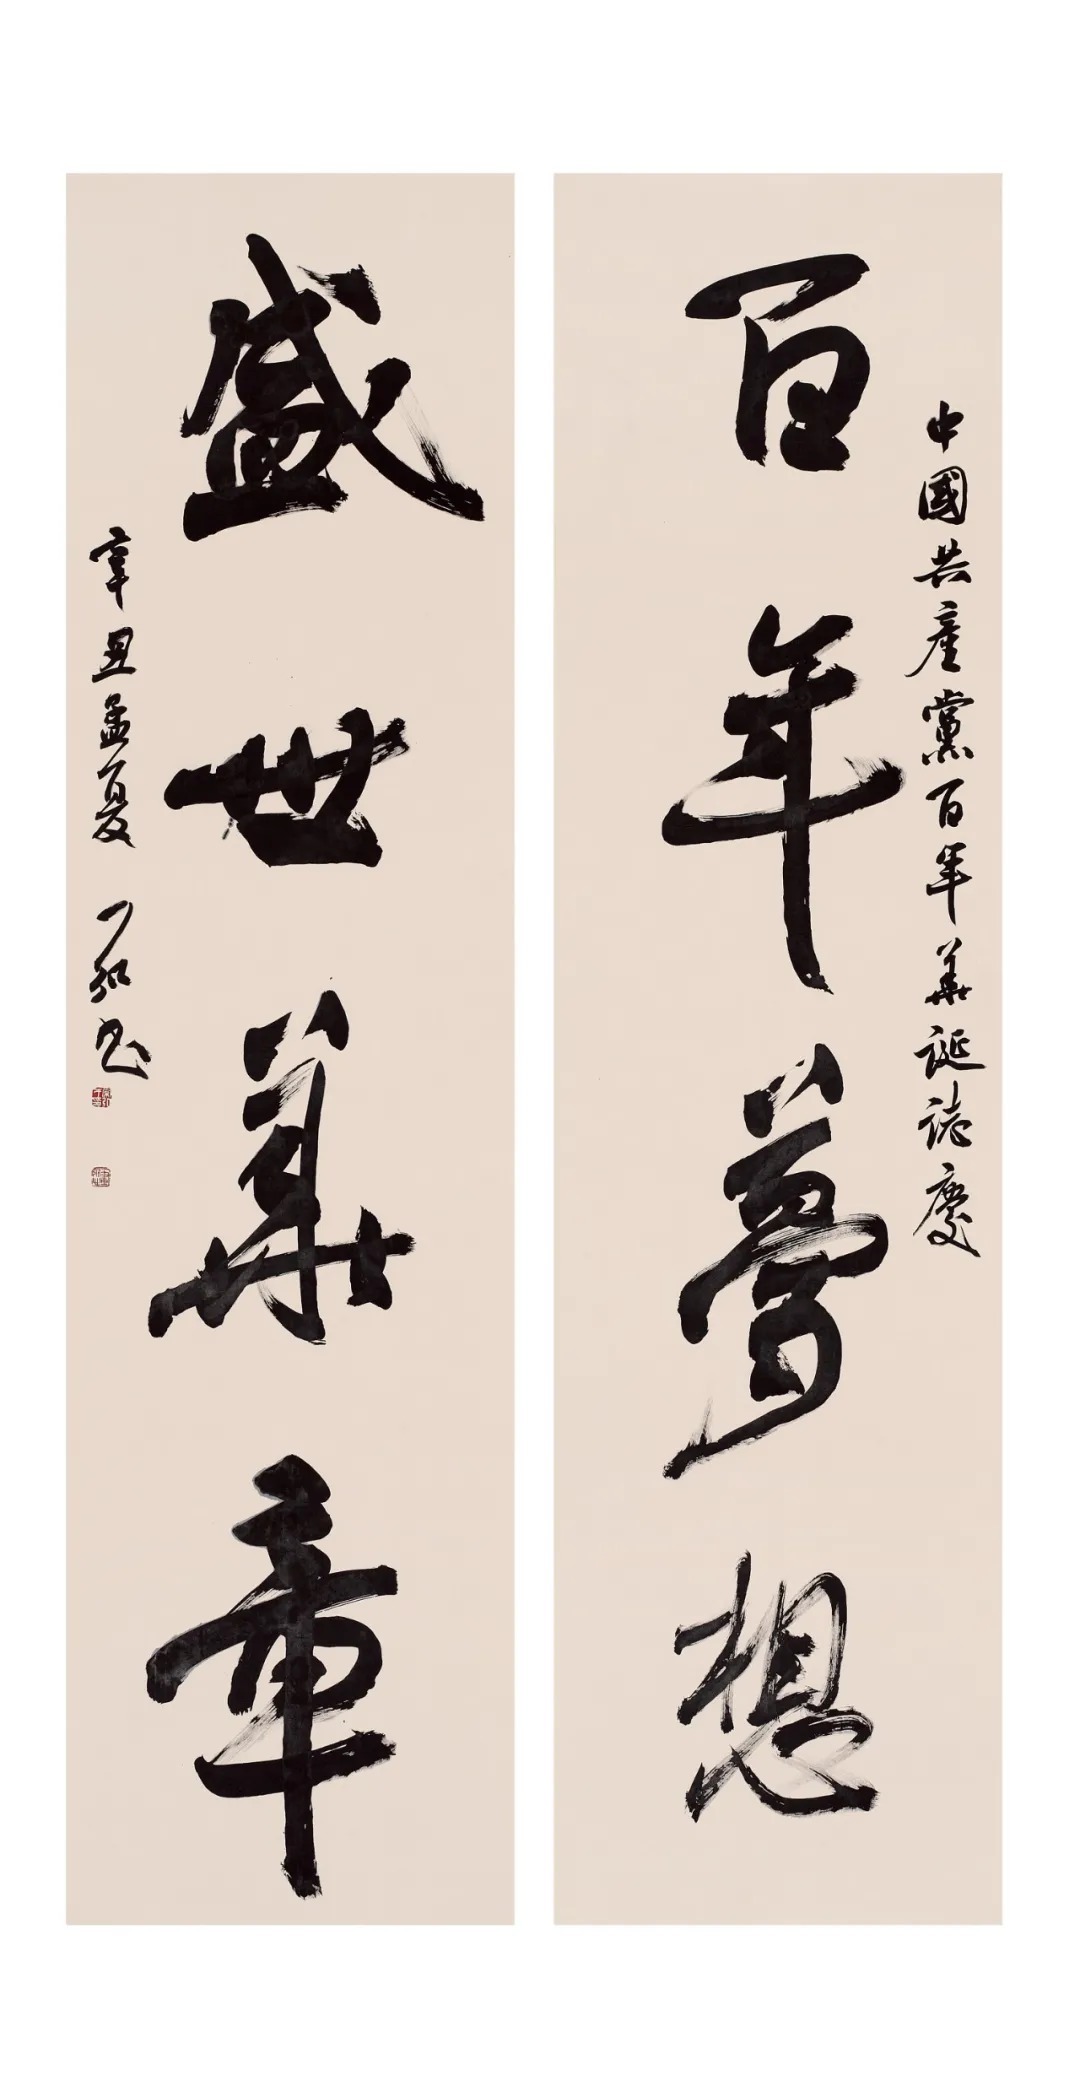 中國共產黨百年華誕誌慶
百年夢想
盛世華章
辛丑孟夏 一弘书